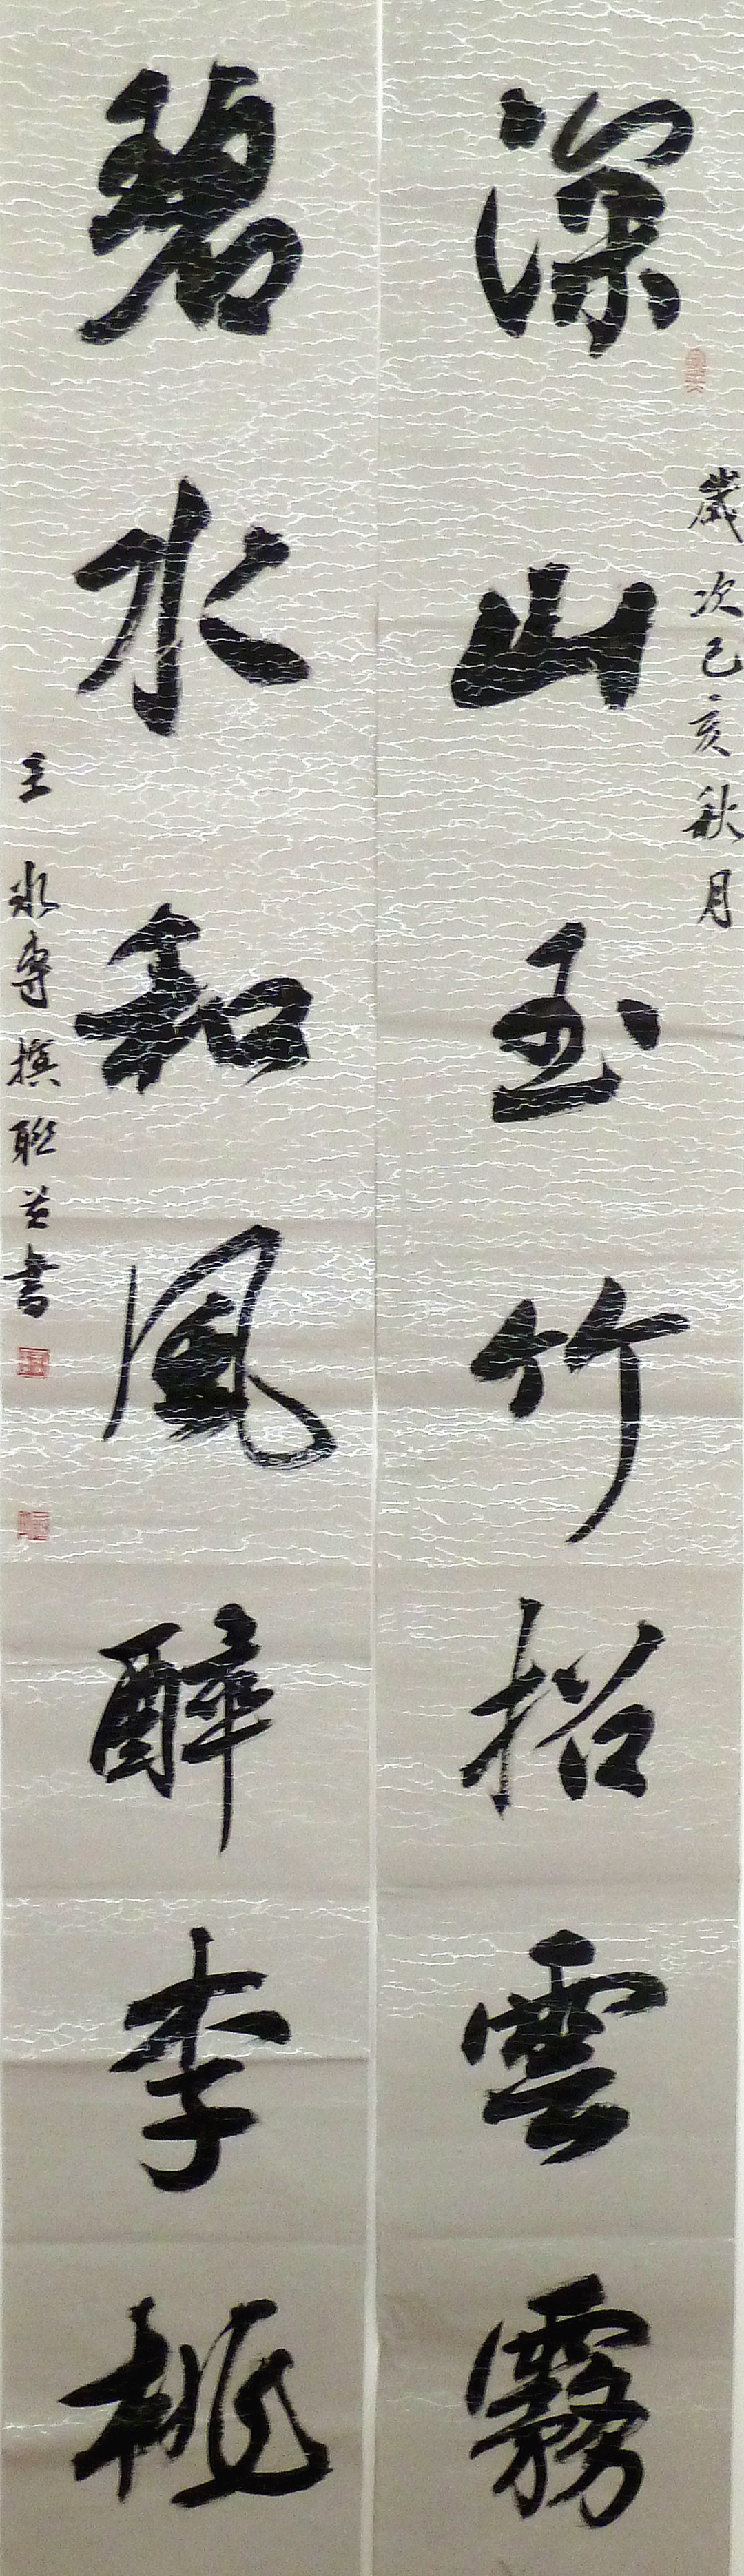 深山玉竹招雲霧
歲次己亥秋月
碧水和風醉李桃
王冰專撰聯並書